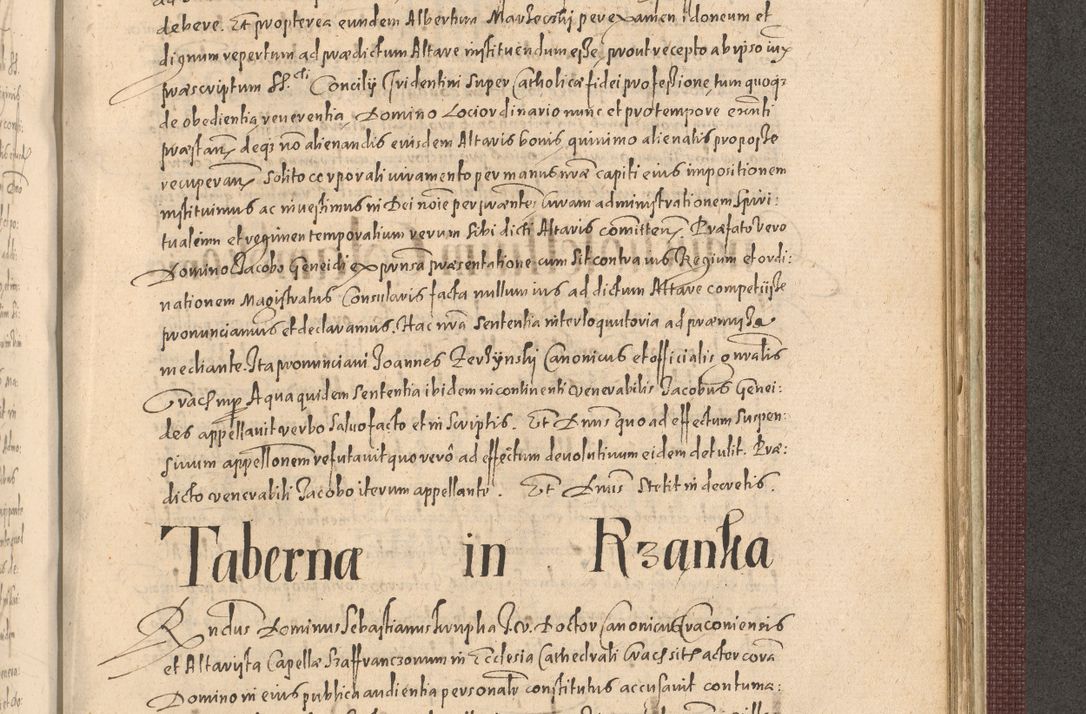 debere. Et propterea eundem Albertum Marlecski per examen idoneum et
dignum repertum ad prædictum Altare instituendum esse prout recepto ab ipso iux
præscriptum SS.cti Concilÿ Tridentini super Catholicæ fidei professione tum quoq3
de obedientia reverentia Domino Loci ordinario nunc et pro tempore exnti
præstan deq3 nõ alienandis eiusdem Altaris bonis quinimo alienatis pro posse
recuperan solito corporali iuramento per manus nræ capiti eius impositionem
instituimus ac investimus in Dei noĩe per præntes Curam administrationem Spiri:
tualeim et regimen temporalium rerum sibi dicti Altaris comitten. Præfato vero
Domino Jacobo Geneidi ex prnsa præsentatione cum sit contra ius Regium et ordi:
nationem Magistratus Consularis facta nullum ius ad dictum Altare competÿsse
pronunciamus et declaramus. Hac nra sententia interloquutoria ad præmissa
mediante. Ita pronunciavi Joannes Zerzynski Canonicus et officialis gnralis
Crac mp A qua quidem sententia ibidem in continenti venerabilis Jacobus Genei:
des appellavit verbo salvo facto et in scriptis. Et Dnus quo ad effectum suspen:
sivum appellonem refutavit quo verô ad effectum devolutivum eidem detulit. Præ:
dicto venerabili Jacobo iterum appellante. Et Dnus stetit in decretis.
Taberna in Rzanka
Rndus Dominus Sebastianus Krupka J.V. Doctor Canonicus Cracoviensis
et Altarista Capellæ Szaffranczonum in Ecclesia Cathedrali Crac sit actor corã
Domino in eius publica audientia personalr constitutus accusavit contuma: